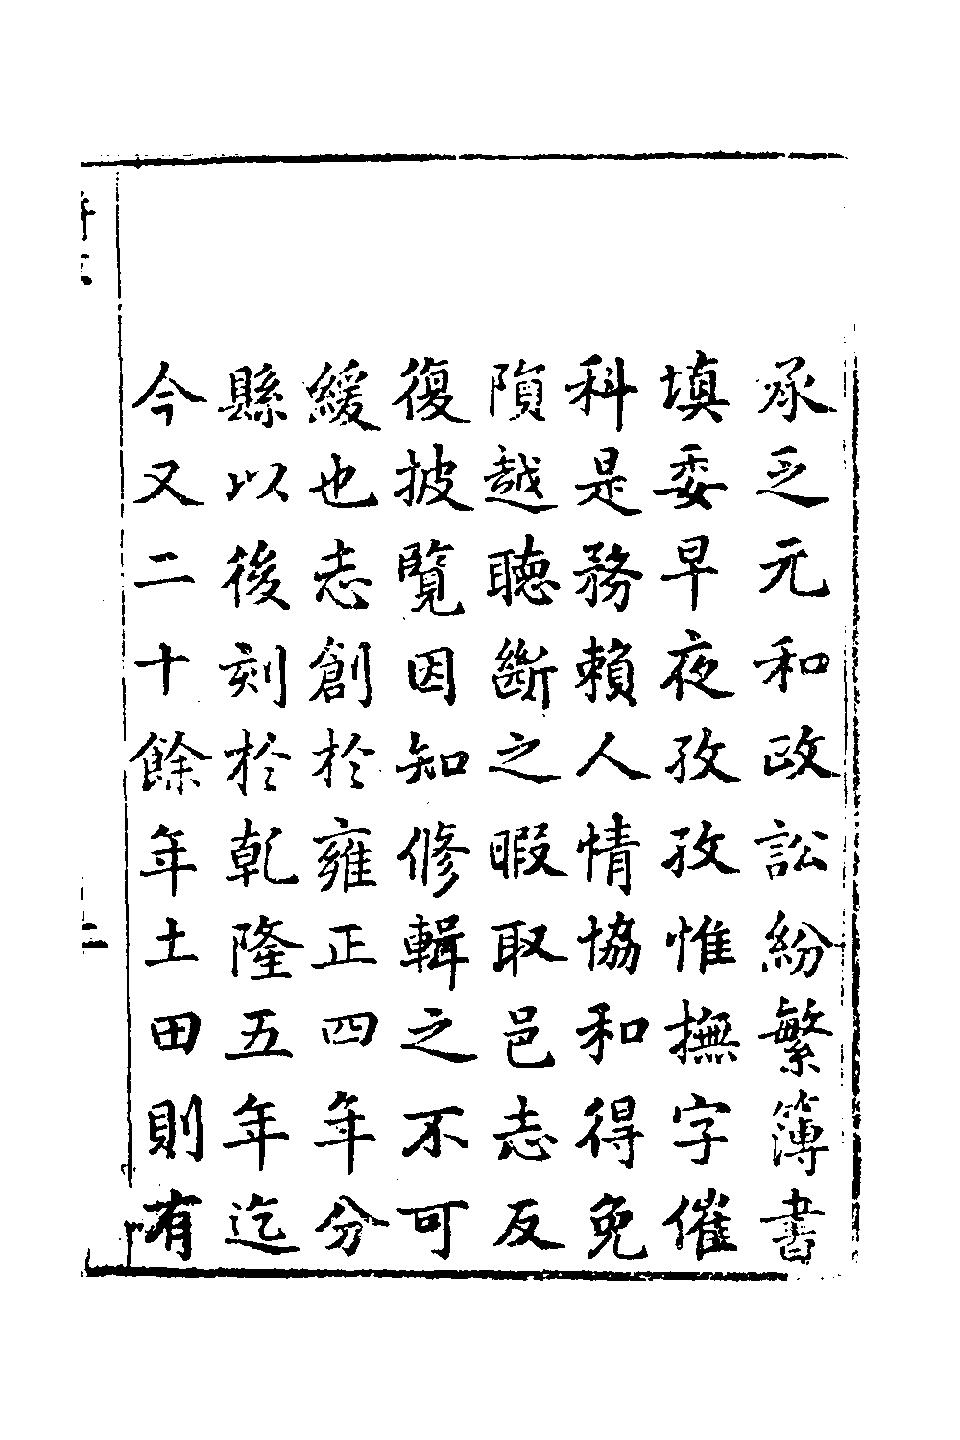 承乏元和政訟紛繁簿書
填委早夜孜孜惟撫字催
科是務賴人情協和得免
隕越聽斷之暇取邑志反
復披覽因知修輯之不可
緩也志創於雍正四年分
縣以後刻於乾隆五年迄
今又二十餘年土田則有